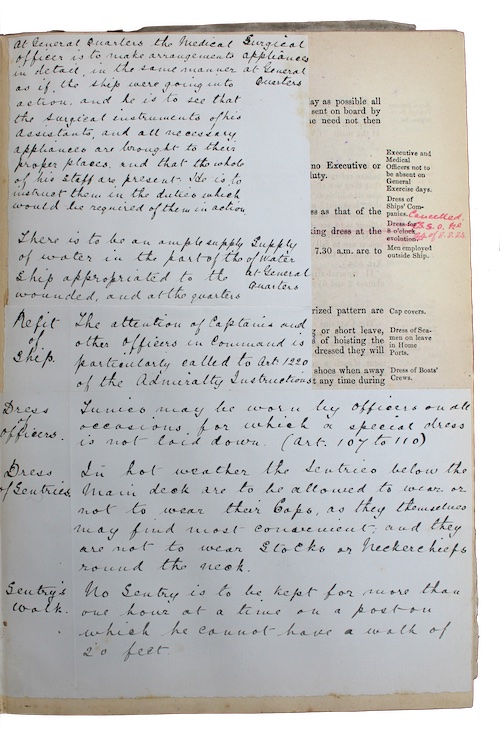 At General Quarters the Medical Surgical
officer is to make arrangements appliances
in detail, in the same manner at General
as if the ship were going into Quarters
action, and he is to see that
the surgical instruments of his
assistants, and all necessary
appliances are brought to their
proper places, and that the whole
of his Staff are present. He is to
instruct them in the duties which
would be required of them in action
There is to be an ample supply Supply
of water in the part of the of Water
ship appropriated to the at General
wounded, and at the quarters Quarters
ay as possible all
sent on board by
ne need not then
no Executive or
luty.
Executive and
Medical
Officers not to
be absent on
General
Exercise days.
ss as that of the
Dress of
Ships' Com-
panies.
Cancelled.
king dress at the
Dress for
8 o'clock
evolution.
7.30 a.m. are to
Men employed
outside Ship.
rized pattern are
Cap covers.
g or short leave,
s of hoisting the
dressed they will
Dress of Sea-
men on leave
in Home
Ports.
shoes when away
t any time during
Dress of Boats'
Crews.
Refit
of
Ship.
The attention of Captains and
other Officers in Command is
particularly called to Art. 1220
of the Admiralty Instructions
Dress
of
Officers.
Tunics may be worn by Officers on all
occasions for which a special dress
is not laid down. (Art. 107 to 110)
Dress
of Sentries
In hot weather the Sentries below the
Main deck are to be allowed to wear or
not to wear their Caps, as they themselves
may find most convenient, and they
are not to wear Stocks or Neckerchiefs
round the neck.
Sentry's
walk.
No Sentry is to be kept for more than
one hour at a time on a post on
which he cannot have a walk of
20 feet.